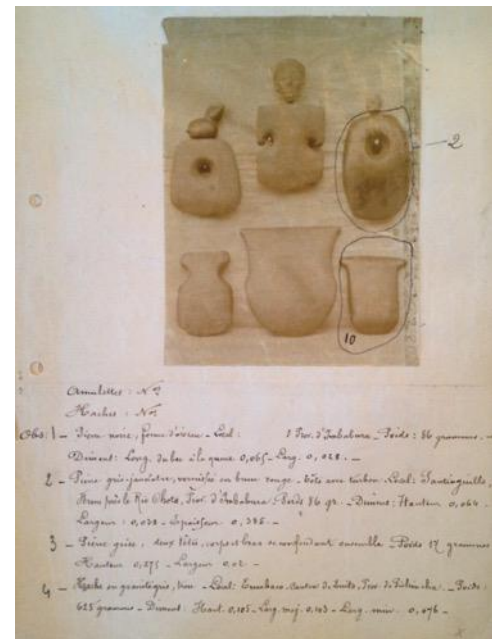 2
10
Amulettes : Nos
Haches : Nos
Obs. 1 – Pierre noire, forme d'oiseau – Local : Prov. d'Imbabura – Poids : 86 grammes. –
Diment : Long. du bec à la queue 0,065 – Larg. 0,028. –
2 – Pierre gris-jaunâtre, vernissée en brun rouge – Tête avec turbon – Local : Santiaguillo,
près le Rio Chota, Prov. d'Imbabura – Poids 86 gr. – Diment : Hauteur 0,064 –
Largeur : 0,038 – Epaisseur 0,
3 – Pierre grise, deux têtes, corps et bras se confondant ensemble – Poids 17 grammes
Hauteur 0,275 – Largeur 0,02 –
4 – Hache en – Local : Cumbaco, canton de Quito, Prov. de Pichincha – Poids :
625 grammes – Diment : Haut. 0,105 – Larg. maj. 0,103 – Larg. min. 0,076 –